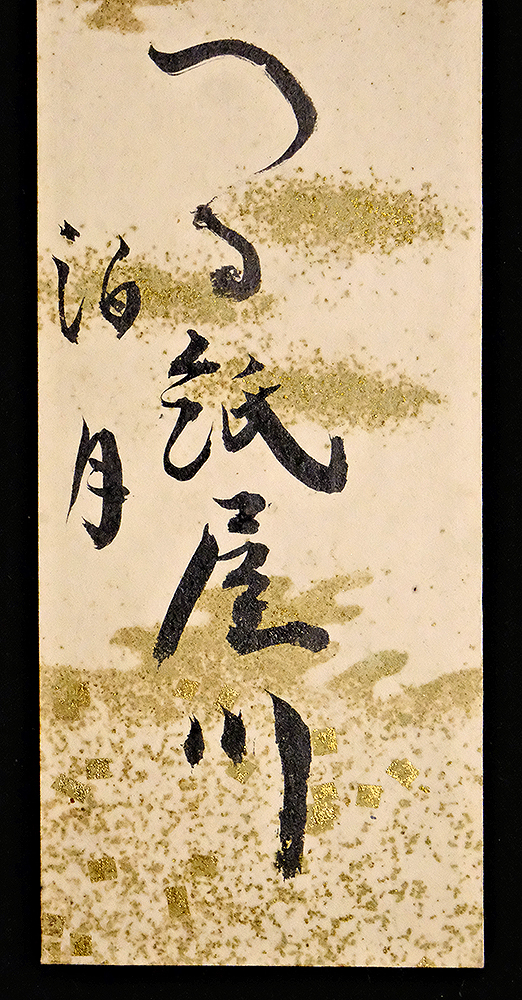 つる紙屋川
泊月